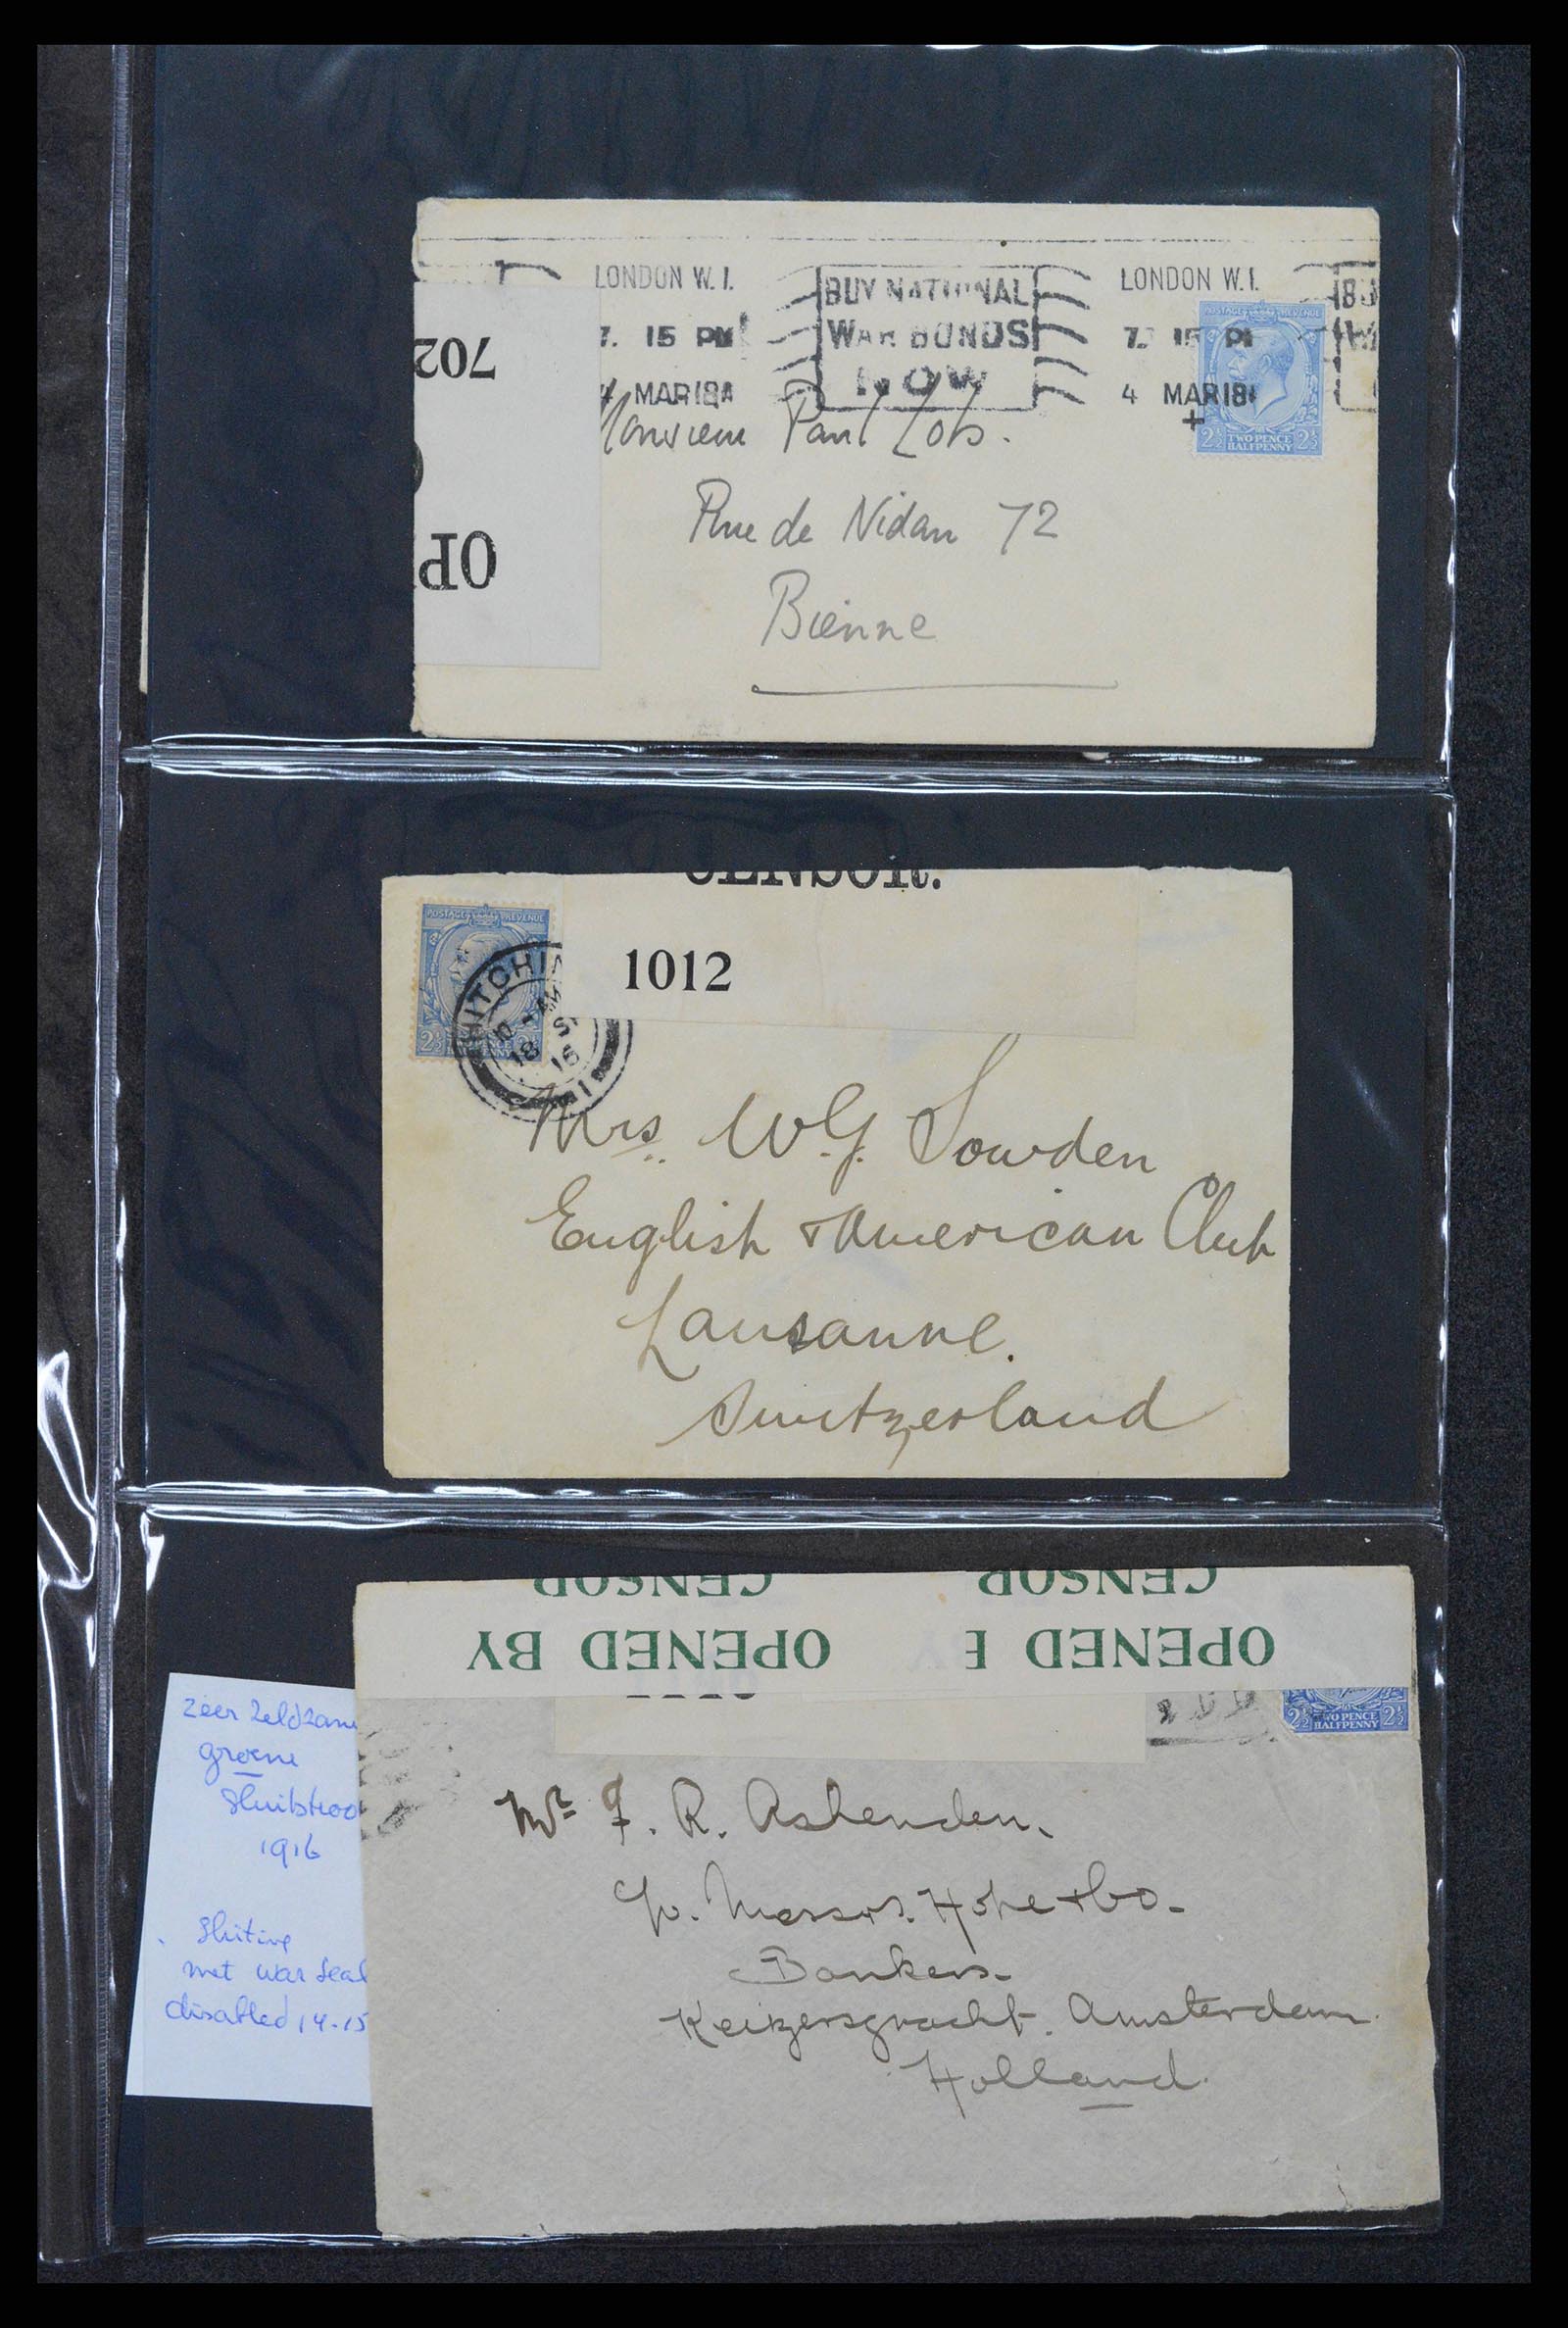 LONDON W.1.
7. 15 PM
4 MAR 18
BUY NATIONAL
WAR BONDS
NOW
LONDON W.1.
7. 15 PM
4 MAR 18
POSTAGE REVENUE
2½ TWO PENCE HALFPENNY 2½
702
OP
Monsieur Paul
Rue de Nidau 72
Bienne
CENSOR.
1012
POSTAGE REVENUE
HITCHIN
10 - AM
18 SP
16
Mrs. W.G. Sowden
English & American Club
Lausanne.
Switzerland
CENSOR CENSOR
OPENED BY OPENED B
2½ TWO PENCE HALFPENNY 2½
Mr F. R. Ashenden.
c/o. Messrs. Hope & Co.
Bankers.
Keizersgracht. Amsterdam.
Holland.
zeer zeldzame
groene
sluitstrook
1916
sluiting
met war seal
disabled 14-15